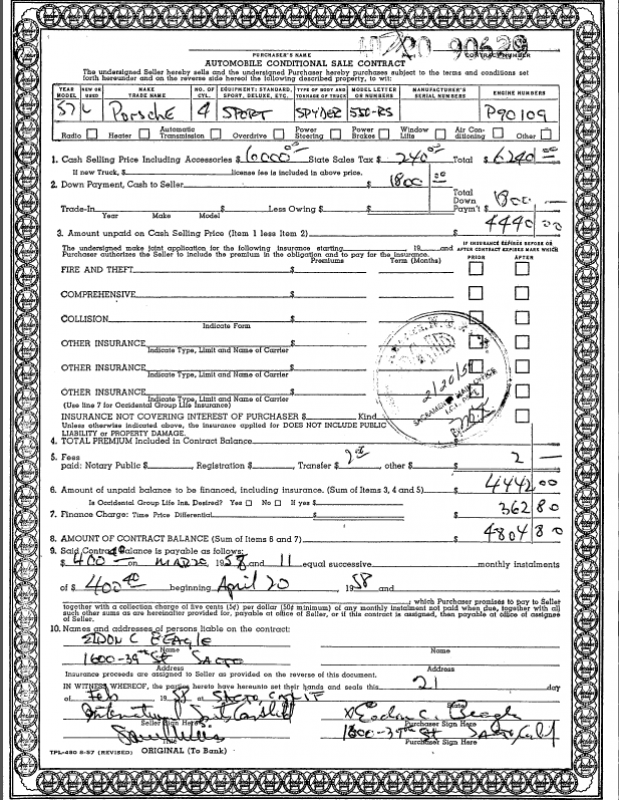 90629
PURCHASER'S NAME CONTRACT NUMBER
AUTOMOBILE CONDITIONAL SALE CONTRACT
The undersigned Seller hereby sells and the undersigned Purchaser hereby purchases subject to the terms and conditions set
forth hereunder and on the reverse side hereof the following described property, to wit:
YEAR MODEL NEW OR USED MAKE TRADE NAME NO. OF CYL. EQUIPMENT: STANDARD, SPORT, DELUXE, ETC. TYPE OF BODY AND TONNAGE OF TRUCK MODEL LETTER OR NUMBERS MANUFACTURER'S SERIAL NUMBERS ENGINE NUMBERS
57 Porsche 4 SPORT SPYDER 550-RS P90109
Radio Heater Automatic Transmission Overdrive Power Steering Power Brakes Window Lifts Air Conditioning Other
1. Cash Selling Price Including Accessories $ 6000 00 State Sales Tax $ 240 00 Total $ 6240 00
If new Truck, $ license fee is included in above price.
2. Down Payment, Cash to Seller $ 1800 00
Total Down Paym't $ 1800 —
Trade-In Less Owing $ $
Year Make Model
3. Amount unpaid on Cash Selling Price (Item 1 less Item 2) $ 4440 00
The undersigned make joint application for the following insurance starting 19 and
Purchaser authorizes the Seller to include the premium in the obligation and to pay for the insurance.
IF INSURANCE EXPIRES BEFORE OR AFTER CONTRACT EXPIRES MARK WHICH
Premiums Term (Months) PRIOR AFTER
FIRE AND THEFT $
COMPREHENSIVE $
COLLISION $
Indicate Form
OTHER INSURANCE $
Indicate Type, Limit and Name of Carrier
OTHER INSURANCE $
Indicate Type, Limit and Name of Carrier
OTHER INSURANCE $
Indicate Type, Limit and Name of Carrier
(Use line 7 for Occidental Group Life Insurance)
PAID
2/20/58
SACRAMENTO
INSURANCE NOT COVERING INTEREST OF PURCHASER $ Kind
Unless otherwise indicated, the insurance applied for DOES NOT INCLUDE PUBLIC
LIABILITY or PROPERTY DAMAGE.
4. TOTAL PREMIUM Included in Contract Balance $
5. Fees
paid: Notary Public $ , Registration $ , Transfer $ 2 00, other $ $ 2 —
6. Amount of unpaid balance to be financed, including insurance. (Sum of Items 3, 4 and 5) $ 4442 00
Is Occidental Group Life Ins. Desired? Yes No If yes $
7. Finance Charge: Time Price Differential $ $ 362 80
8. AMOUNT OF CONTRACT BALANCE (Sum of Items 6 and 7) $ 4804 80
9. Said Contract Balance is payable as follows:
$ 400 40 on MAR 20 1958 and 11 equal successive monthly instalments
of $ 400 40 beginning April 20, 1958 and
, which Purchaser promises to pay to Seller
together with a collection charge of five cents (5¢) per dollar (50¢ minimum) of any monthly instalment not paid when due, together with all
such other sums as are hereinafter provided for, payable at office of Seller, or if this contract is assigned, then payable at office of assignee
of Seller.
10. Names and addresses of persons liable on the contract:
ELDON C BEAGLE
Name Name
1600-39th St SACTO
Address Address
Insurance proceeds are assigned to Seller as provided on the reverse of this document.
IN WITNESS WHEREOF, the parties hereto have hereunto set their hands and seals this 21 day
of Feb 1958 at SACTO, CALIF
X Eldon C. Beagle
Seller Sign Here Purchaser Sign Here
1600-39th St Sacto, Calif
Purchaser Sign Here
TPL-490 8-57 (REVISED) ORIGINAL (To Bank)